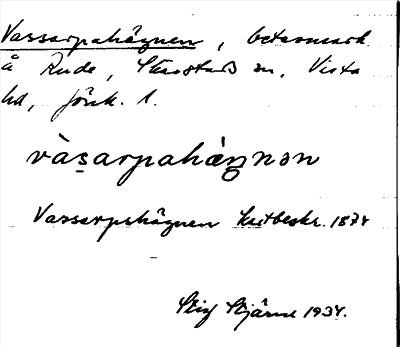 Vassarpahägnen, betesmark
å Rude, Skärstads sn, Vista
hd, Jönk. l.
vàsarpahàŋnən
Vassarpshägnen kartbeskr. 1874
Stig Stjärne 1934.